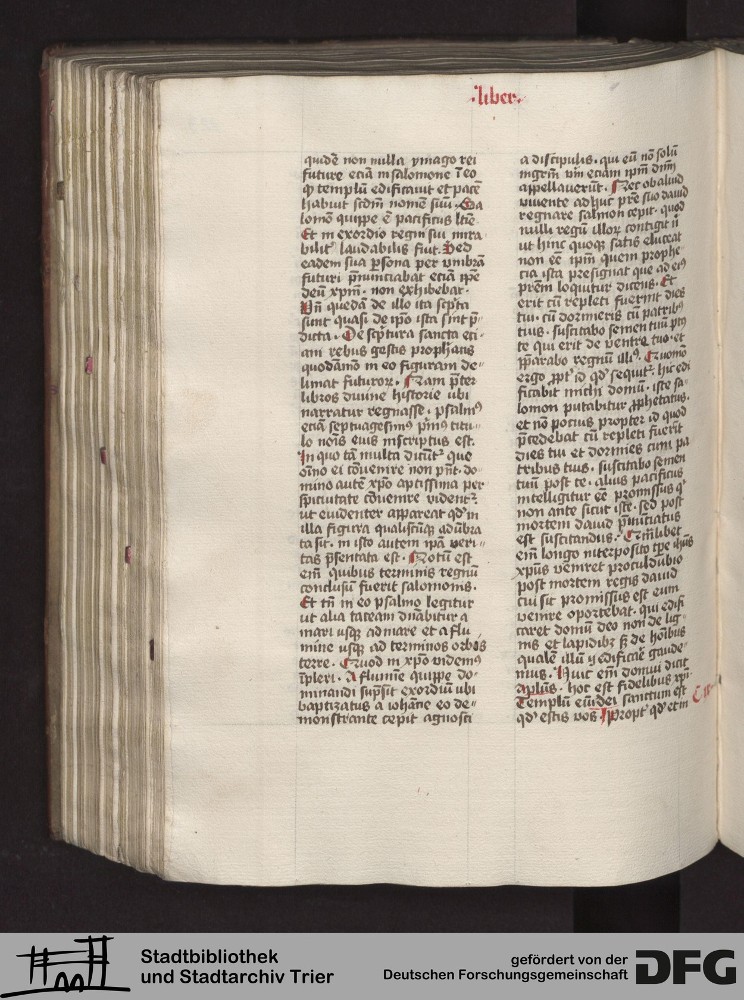 ·liber·
quidē non nulla ymago rei
future eciā in salomone ī eo
ꝙ templū edificauit et pacē
habuit scdm̄ nomē suū. Sa
lomō quippe ē pacificus latīe
Et in exordio regni sui mira
bilit͛ laudabilis fuit. Sed
eadem sua ꝑsona per vmbrā
futuri p̄nunciabat eciā ipē
deū xp̄m. non exhibebat.
Vn̄ quedā de illo ita scp̄ta
sunt quasi de ip̄o ista sint p̄
dicta. De scp̄tura sancta eci
am rebus gestis prophans
quodāmō in eo figuram de
limat futuroꝝ. Nam p̄ter
libros diuine historie ubi
narratur regnasse. psalmꝰ
eciā septuagesimꝰ pm̄ꝰ titu
lo nois eius inscriptus est.
In quo tā multa dicūt͛ que
oīno ei cōuenire non pn̄t. do
mino autē xpō aptissima per
spicuitate cōuenire vident͛.
ut euidenter appareat qd̓ in
illa figura qualiscūqꝫ adūbra
ta sit. in isto autem ipā veri
tas p̄sentata est. Notū est
em̄ quibus terminis regnū
conclusū fuerit salomonis.
Et tn̄ in eo psalmo legitur
ut alia taceam dn̄abitur a
mari usqꝫ ad mare et a flu
mine usqꝫ ad terminos orbis
terre. Quod in xpō videmꝰ
īpleri. A flumine quippe do
minandi sūpsit exordiū ubi
baptizatus a iohāne eo de
monstrante cepit agnosci
a discipulis. qui eū nō solū
mgrm̄ vm̄ eciam ip̄m dn̄m
appellauerūt. Nec ob aliud
viuente adhuc pr̄e suo dauid
regnare salmon cepit. quod
nulli regū illoꝝ contigit n̄
ut hinc quoqꝫ satis eluceat
non eē ip̄m quem prophe
cia ista presignat que ad eiꝰ
prēm loquitur dicens. Et
erit cū repleti fuerint dies
tui. cū dormieris cū patribꝰ
tuis. suscitabo semen tuū pꝰ
te qui erit de ventre tuo. et
p̄parabo regnū illiꝰ. Quomō
ergo ꝓpt͛ id qd̓ sequit͛. hic edi
ficabit michi domū. iste sa
lomon putabitur ꝓphetatus.
et nō pocius propter id quod
p̄cedebat cū repleti fuerīt
dies tui et dormies cum pa
tribus tuis. suscitabo semen
tuū post te. alius pacificus
intelligitur eē promissus q͛
non ante sicut iste. sed post
mortem dauid p̄nūciatus
est suscitandus. Quālibet
em̄ longo interposito tp̄e ihūs
xp̄us veniret proculdubio
post mortem regis dauid
cui sic promissus est eum
venire oportebat. qui edifi
caret domū deo non de lig
nis et lapidibꝫ sꝫ de hoībus
qualē illū ꝫ edificare gaude
mus. Huic em̄ domui dicit
apl̄us. hoc est fidelibus xp̄i.
Templū em̄ dei sanctum est
qd̓ estis vos. Propt͛ qd̓ et in
Stadtbibliothek
und Stadtarchiv Trier
gefördert von der
Deutschen Forschungsgemeinschaft
DFG